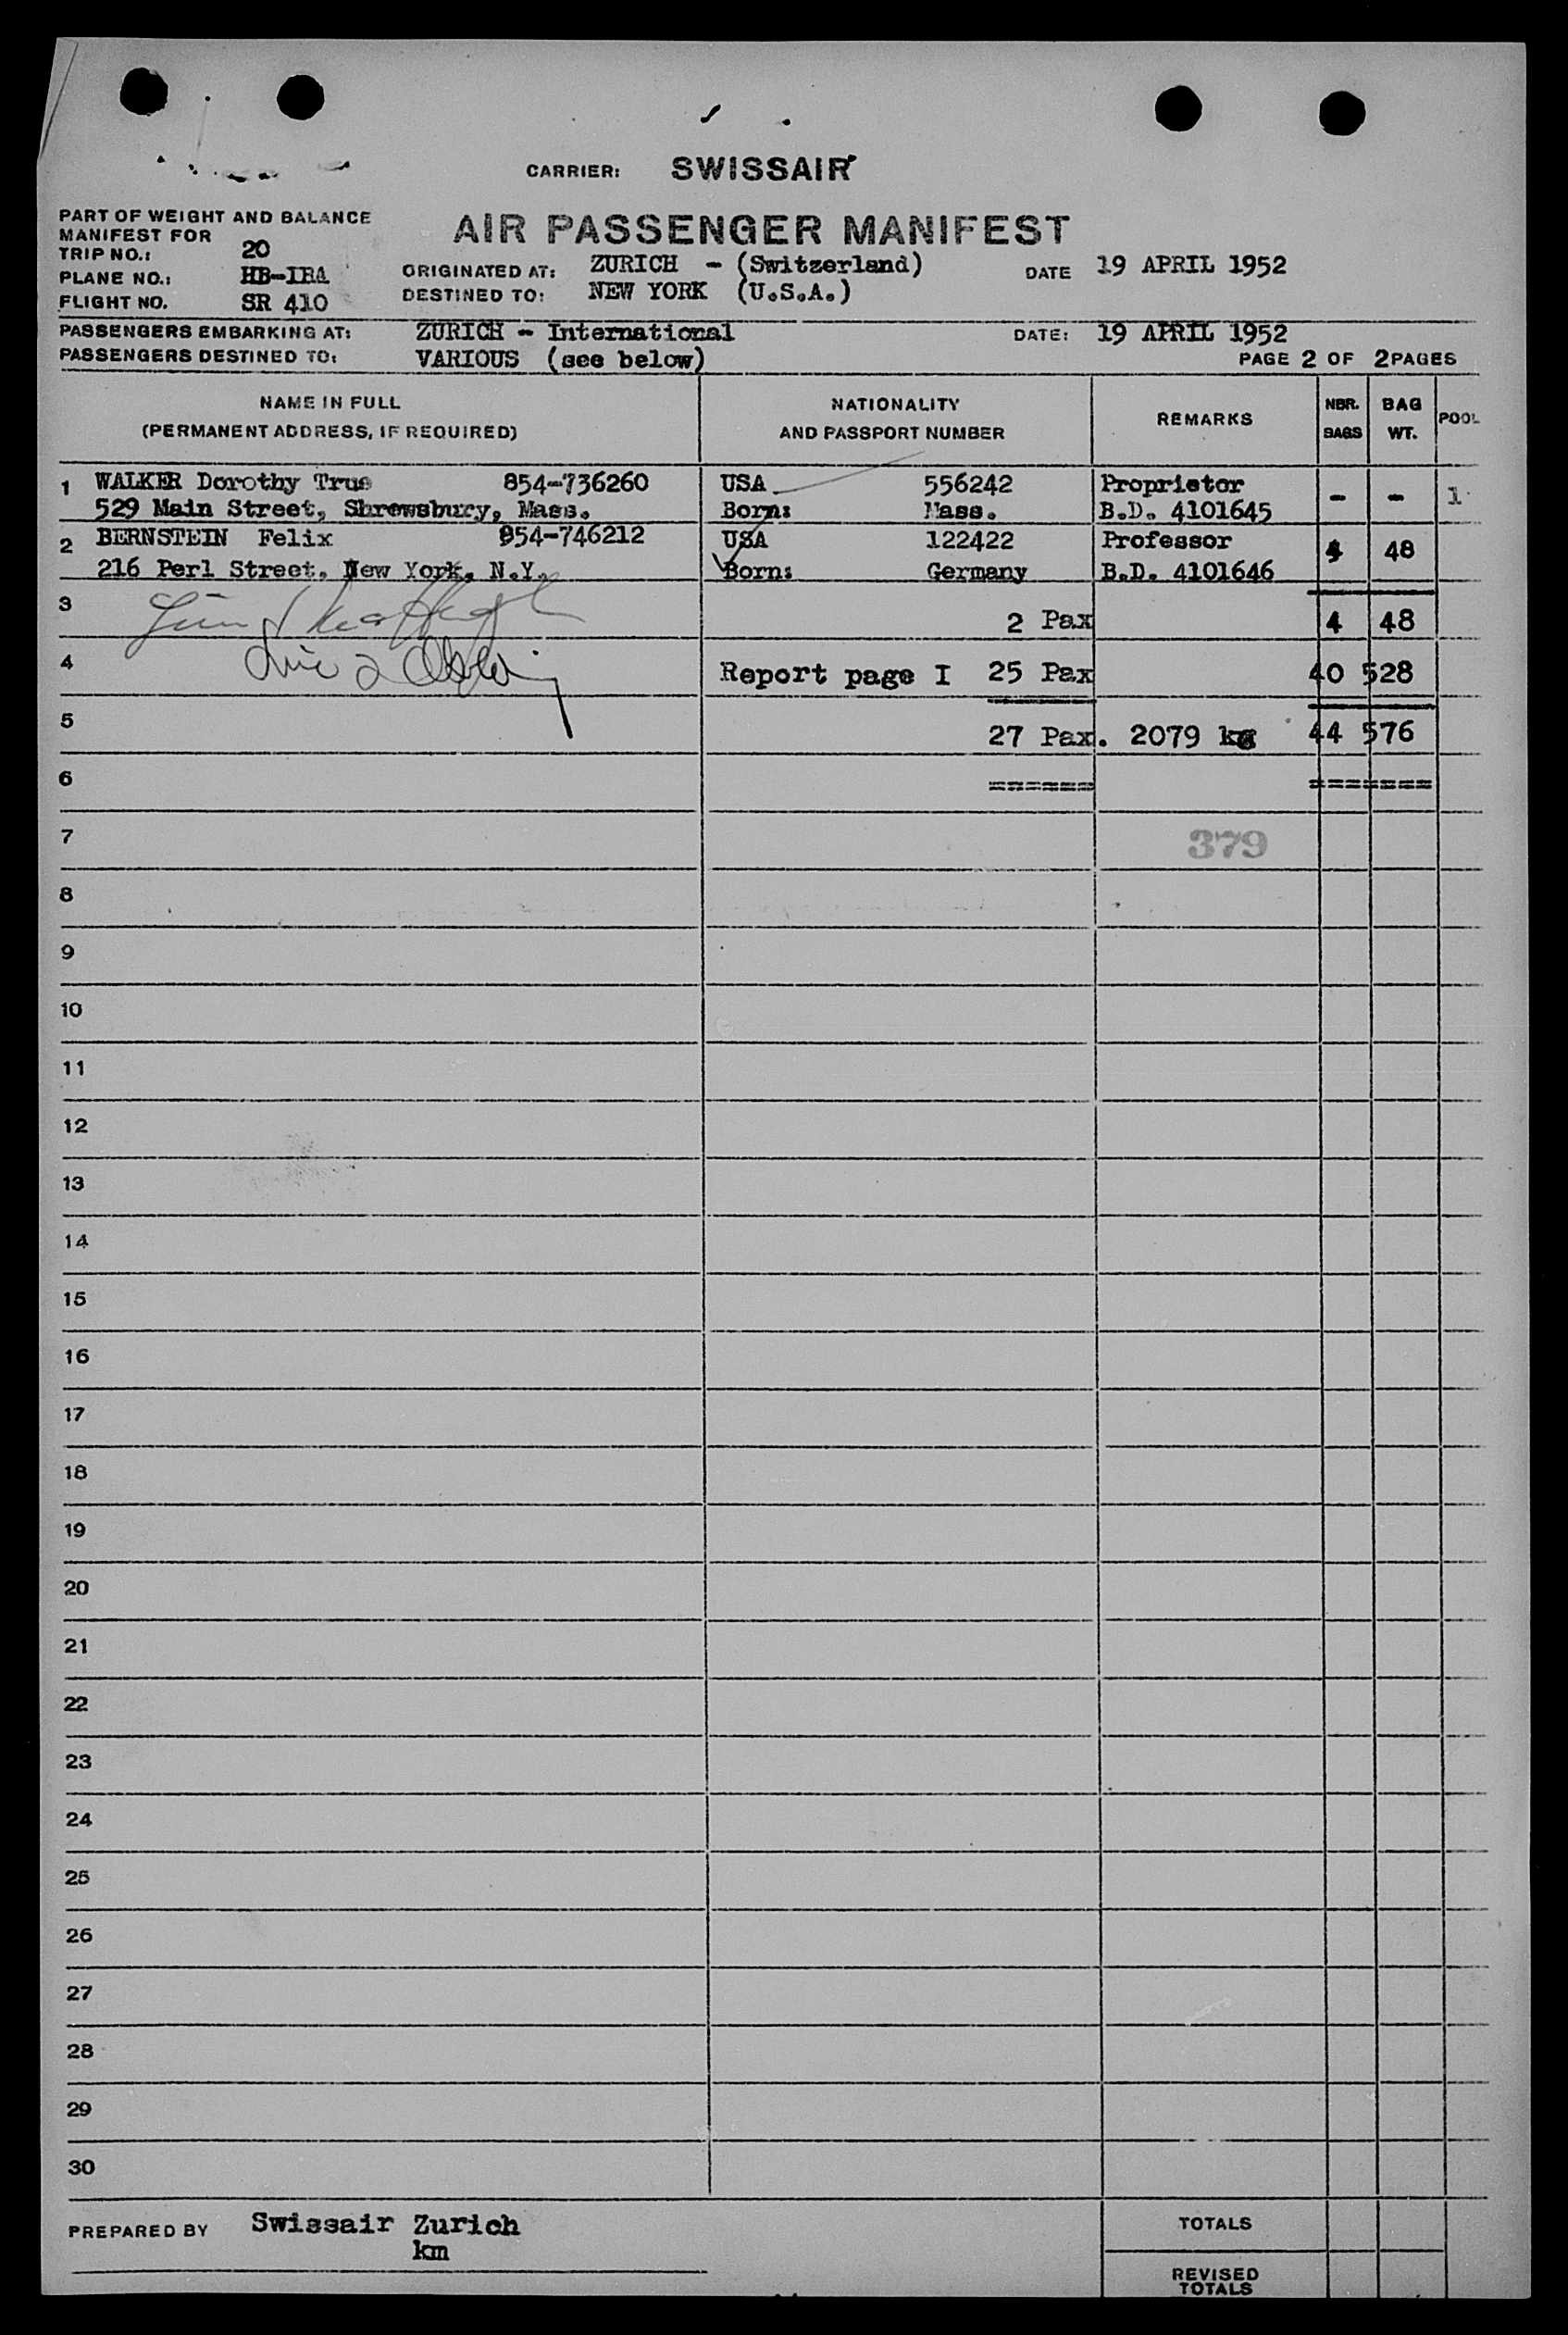 CARRIER: SWISSAIR
PART OF WEIGHT AND BALANCE
MANIFEST FOR
AIR PASSENGER MANIFEST
TRIP NO.: 20
PLANE NO.: HB-IBA
FLIGHT NO. SR 410
ORIGINATED AT: ZURICH - (Switzerland) DATE 19 APRIL 1952
DESTINED TO: NEW YORK (U.S.A.)
PASSENGERS EMBARKING AT: ZURICH - International DATE: 19 APRIL 1952
PASSENGERS DESTINED TO: VARIOUS (see below) PAGE 2 OF 2 PAGES
NAME IN FULL NATIONALITY REMARKS NBR. BAG POOL
(PERMANENT ADDRESS, IF REQUIRED) AND PASSPORT NUMBER BAGS WT.
1 WALKER Dorothy True 854-736260 USA 556242 Proprietor - - 1
529 Main Street, Shrewsbury, Mass. Born: Mass. B.D. 4101645
2 BERNSTEIN Felix 954-746212 USA 122422 Professor 4 48
216 Perl Street. New York, N.Y. Born: Germany B.D. 4101646
3 2 Pax 4 48
4 Report page I 25 Pax 40 528
5 27 Pax. 2079 kg 44 576
6 ====== =======
7 379
8
9
10
11
12
13
14
15
16
17
18
19
20
21
22
23
24
25
26
27
28
29
30
PREPARED BY Swissair Zurich TOTALS
km
REVISED
TOTALS